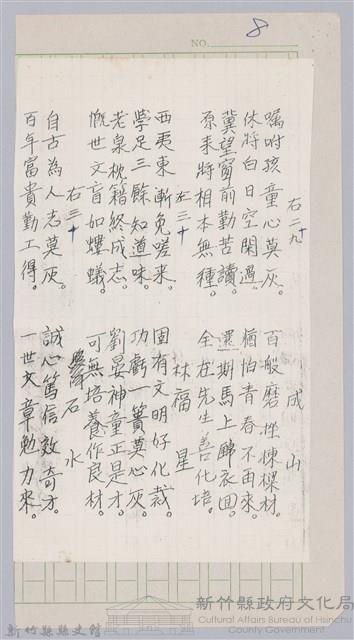 NO.
8
右二九　　成山
囑咐孩童心莫灰。百般磨挫棟樑材。
休將白日空閑過。猶怕青春不再來。
冀望窗前勤苦讀。還期馬上歸衣回。
原來將相本無種。全在先生善化培。
左三十　　林福星
西夷東漸免嗟來。固有文明好化裁。
學足三餘知道味。功虧一簣莫心灰。
老泉枕籍終成志。劉晏神童正是才。
慨世文盲如螻蟻。可無培養作良材。
右三十　　石水
自古為人志莫灰。誠心篤信效奇才。
百年富貴勤工得。一世文章勉力來。
新竹縣縣史館
新竹縣政府文化局
Cultural Affairs Bureau of Hsinchu County Government